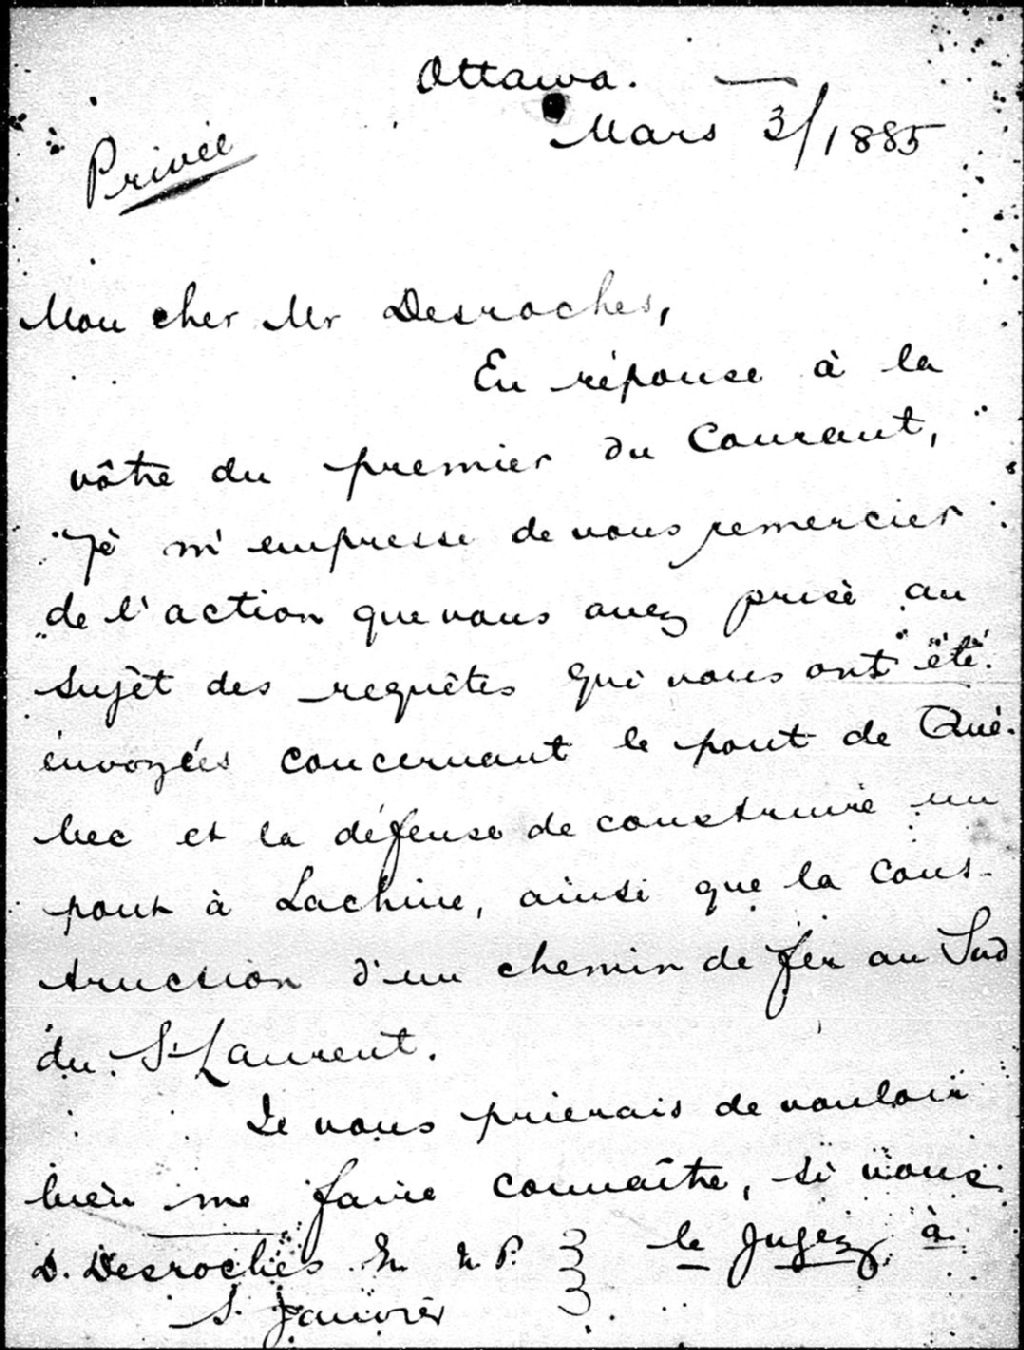 Ottawa.
Mars 3/1885
Privée
Mon cher Mr Desroches,
En réponse à la
vôtre du premier du Courant,
Je m'empresse de vous remercier
de l'action que vous avez prise au
sujet des requêtes qui vous ont été
envoyées concernant le pont de Qué-
bec et la défense de construire un
pont à Lachine, ainsi que la cons-
truction d'un chemin de fer au Sud
du St Laurent.
Je vous prierais de vouloir
bien me faire connaître, si vous
le jugez à
D. Desroches M. P.
St Janvier